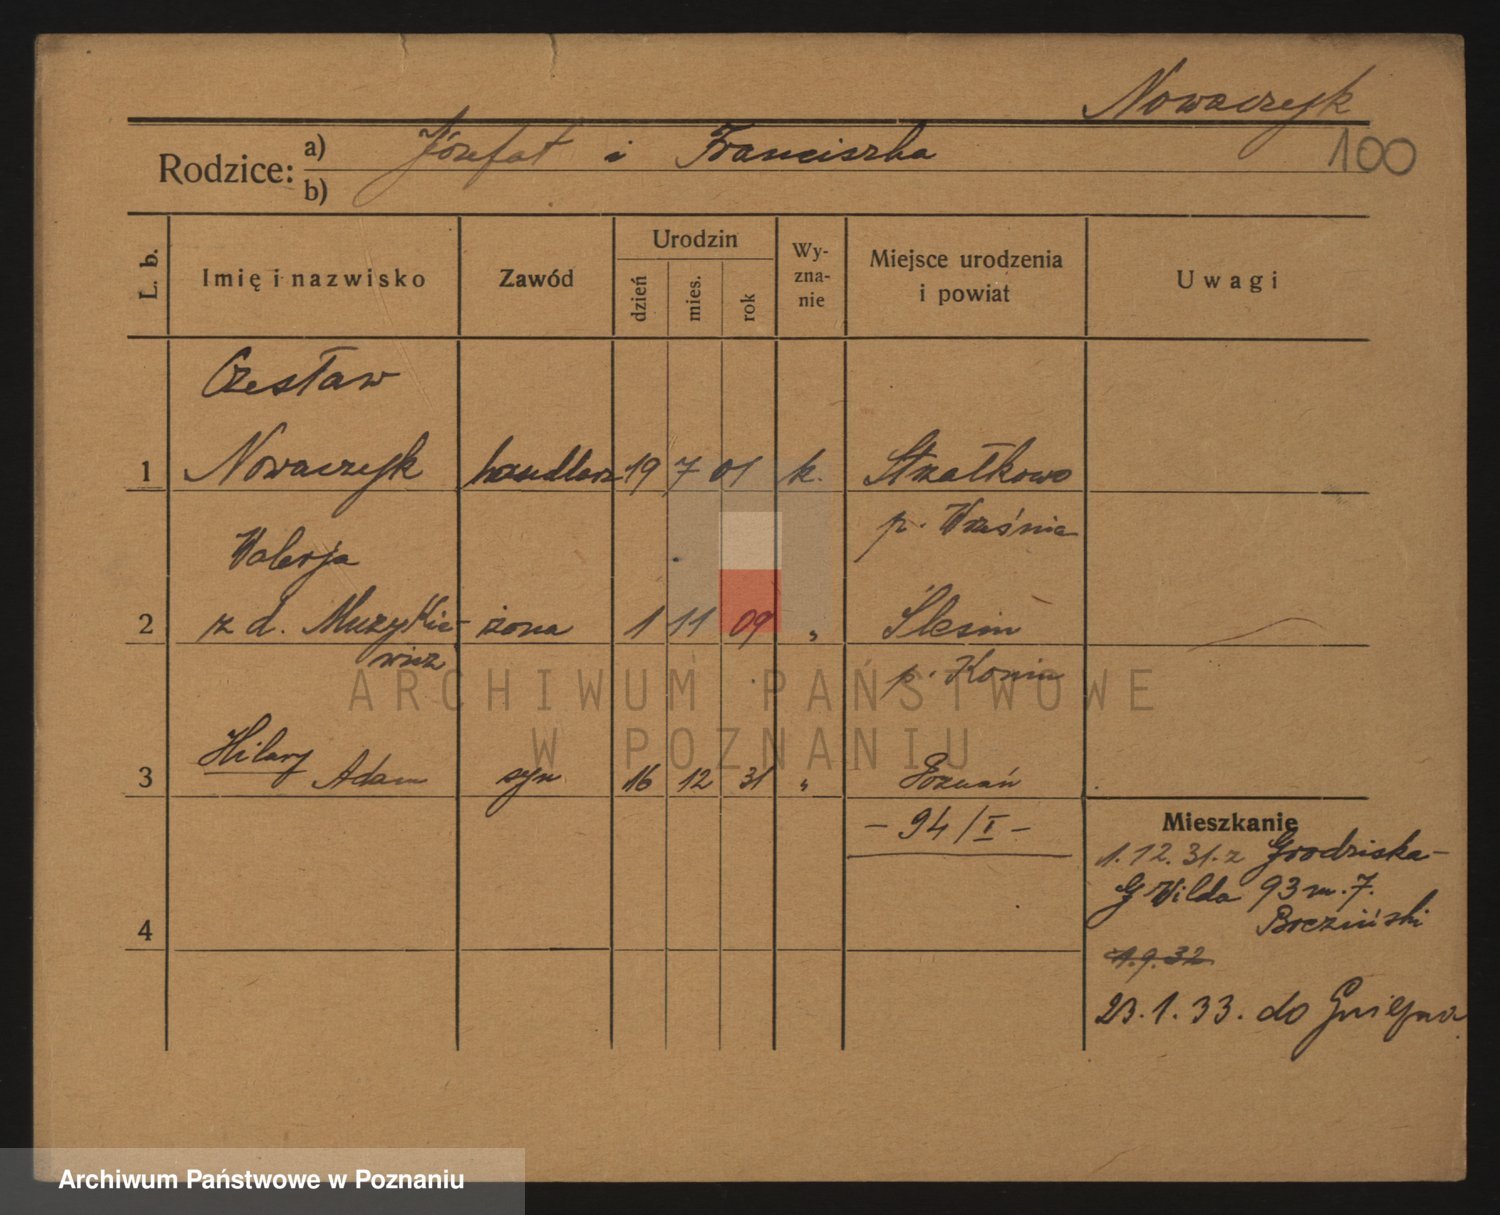 Nowaczyk
100
Rodzice: a) Józefat i Franciszka
b)
L. b. Imię i nazwisko Zawód Urodzin dzień mies. rok Wy-zna-nie Miejsce urodzenia i powiat Uwagi
Czesław
1 Nowaczyk handlarz 19 7 01 k. Strzałkowo
p. Września
Walerja
2 z d. Muzykie- żona 1 11 09 " Ślesin
wicz p. Konin
3 Hilary Adam syn 16 12 31 " Poznań
- 94/I -
Mieszkanie
1.12.31. z Grodziska-
G Wilda 93 m. 7.
4
1.9.32
23.1.33. do Gniezna
ARCHIWUM PAŃSTWOWE
W POZNANIU
Archiwum Państwowe w Poznaniu